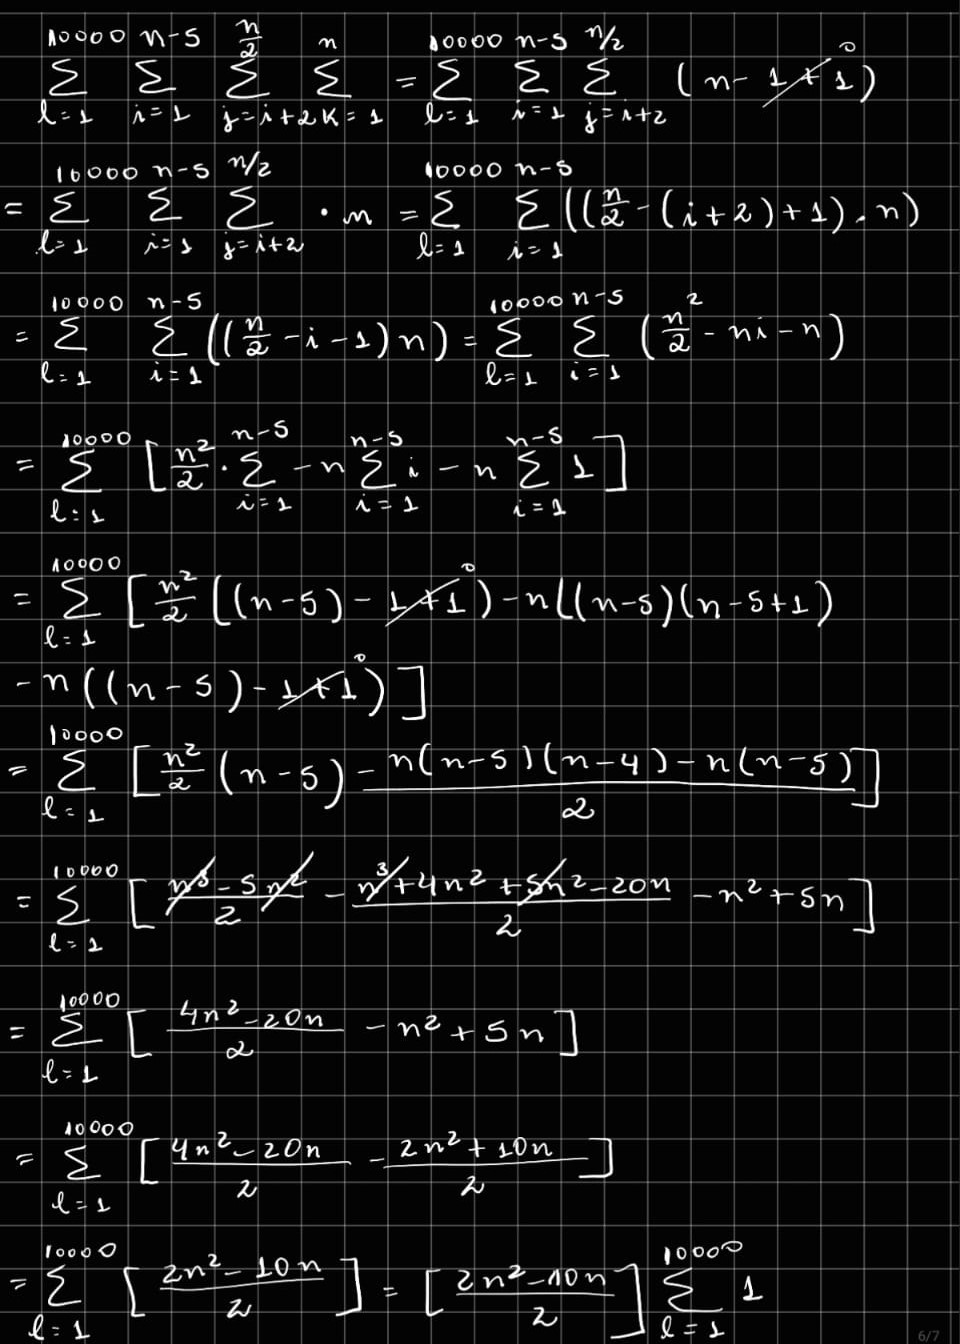 \sum_{l=1}^{10000} \sum_{i=1}^{n-5} \sum_{j=i+2}^{\frac{n}{2}} \sum_{k=1}^{n} = \sum_{l=1}^{10000} \sum_{i=1}^{n-5} \sum_{j=i+2}^{n/2} (n - \cancel{1+1}^{0})
= \sum_{l=1}^{10000} \sum_{i=1}^{n-5} \sum_{j=i+2}^{n/2} \cdot n = \sum_{l=1}^{10000} \sum_{i=1}^{n-5} ((\frac{n}{2} - (i+2)+1) \cdot n)
= \sum_{l=1}^{10000} \sum_{i=1}^{n-5} ((\frac{n}{2} - i - 1) n) = \sum_{l=1}^{10000} \sum_{i=1}^{n-5} (\frac{n^2}{2} - ni - n)
= \sum_{l=1}^{10000} [ \frac{n^2}{2} \cdot \sum_{i=1}^{n-5} - n \sum_{i=1}^{n-5} i - n \sum_{i=1}^{n-5} 1 ]
= \sum_{l=1}^{10000} [ \frac{n^2}{2} ((n-5) - \cancel{1+1}^{0}) - n((n-5)(n-5+1)
- n((n-5) - \cancel{1+1}^{0}) ]
= \sum_{l=1}^{10000} [ \frac{n^2}{2} (n-5) - \frac{n(n-5)(n-4) - n(n-5)}{2} ]
= \sum_{l=1}^{10000} [ \frac{\cancel{n^3} - 5\cancel{n^2}}{2} - \frac{\cancel{n^3} + 4n^2 + \cancel{5n^2} - 20n}{2} - n^2 + 5n ]
= \sum_{l=1}^{10000} [ \frac{4n^2 - 20n}{2} - n^2 + 5n ]
= \sum_{l=1}^{10000} [ \frac{4n^2 - 20n}{2} - \frac{2n^2 + 10n}{2} ]
= \sum_{l=1}^{10000} [ \frac{2n^2 - 10n}{2} ] = [ \frac{2n^2 - 10n}{2} ] \sum_{l=1}^{10000} 1
6/7